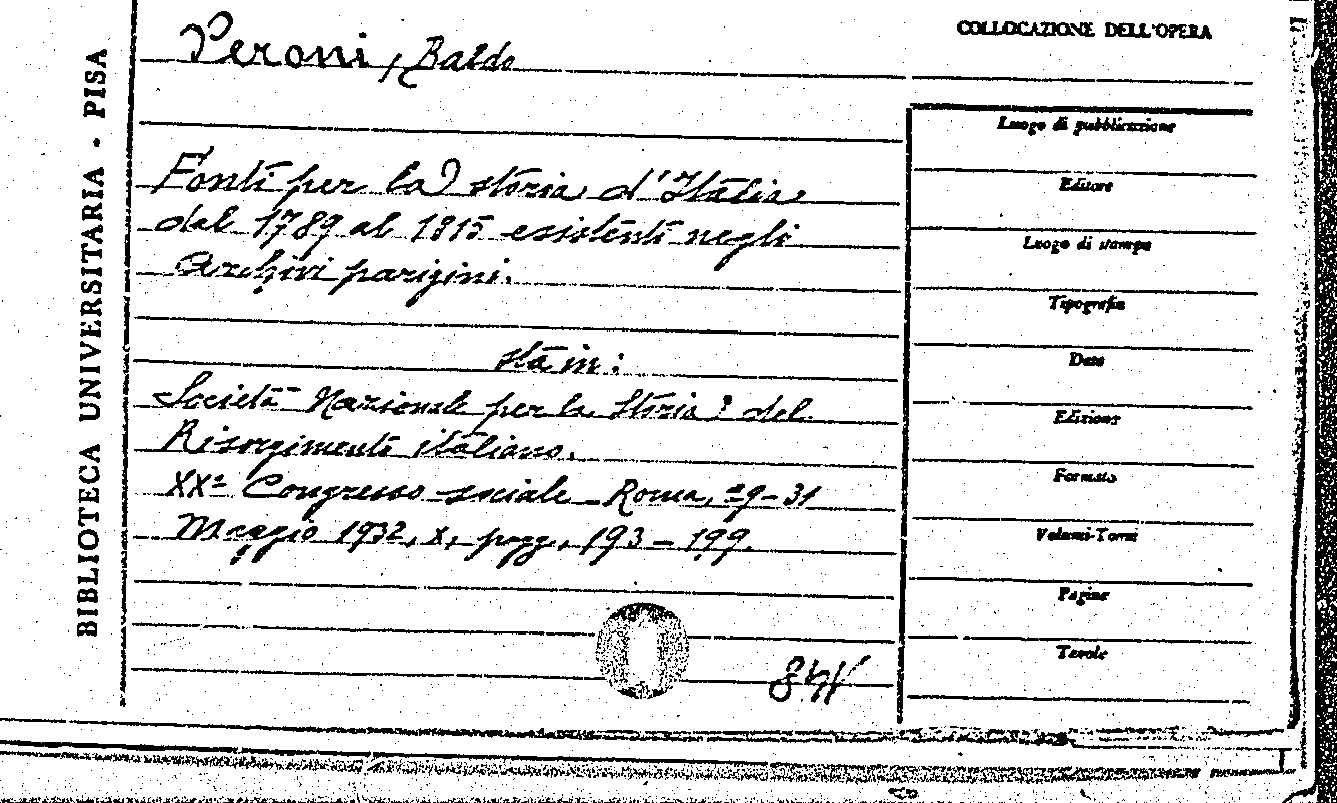 BIBLIOTECA UNIVERSITARIA - PISA
Peroni, Baldo
Fonti per la storia d'Italia
dal 1789 al 1815 esistenti negli
Archivi parigini.
sta in:
Società Nazionale per la Storia del
Risorgimento italiano.
XXº Congresso sociale - Roma, 29-31
Maggio 1932, X, pagg. 193-199.
COLLOCAZIONE DELL'OPERA
Luogo di pubblicazione
Editore
Luogo di stampa
Tipografia
Data
Edizione
Formato
Volumi-Tomi
Pagine
Tavole